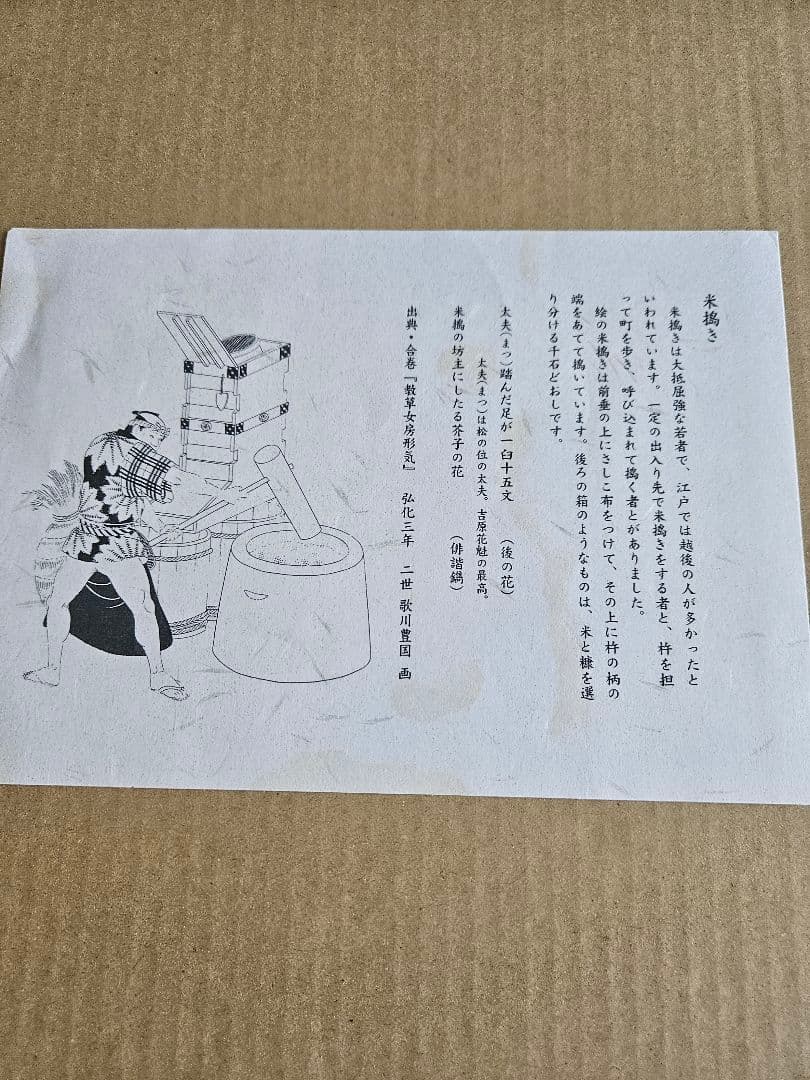 米搗き
米搗きは大抵屈強な若者で、江戸では越後の人が多かったと
いわれています。一定の出入り先で米搗きをする者と、杵を担
って町を歩き、呼び込まれて搗く者とがありました。
絵の米搗きは前垂の上にさしこ布をつけて、その上に杵の柄の
端をあてて搗いています。後ろの箱のようなものは、米と糠を選
り分ける千石どおしです。
太夫(まつ)踏んだ足が一臼十五文 (後の花)
太夫(まつ)は松の位の太夫。吉原花魁の最高。
米搗の坊主にしたる芥子の花 (俳諧鐫)
出典・合巻『教草女房形気』 弘化三年 二世 歌川豊国 画